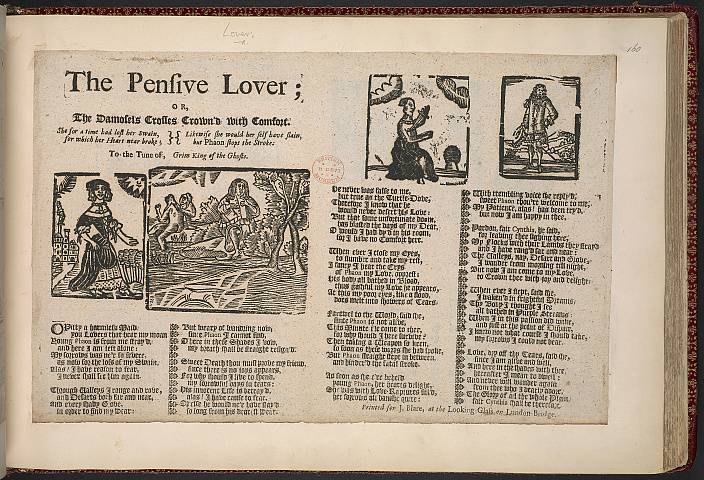 Lover.
160
The Pensive Lover;
OR,
The Damosels Crosses Crown'd with Comfort.
She for a time had lost her Swain,
for which her Heart near broke;
Likewise she would her self have slain,
but Phaon stops the Stroke.
To the Tune of, Grim King of the Ghosts.
O Pitty a harmless Maid,
you Lovers that hear my moan
Young Phaon is from me stray'd,
and here I am left alone:
My sorrows was ne'r so severe,
as now for the loss of my Swain;
Alas! I have reason to fear,
I never shall see him again.
Through Valleys I range and rove,
and Desarts both far and near,
and every shady Grove,
in order to find my Dear:
But weary of wandring now,
since Phaon I cannot find,
Here in these Shades I vow,
my breath shall be straight resign'd.
Sweet Death thou must prove my friend,
since there is no joys appears,
For why should I live to spend,
my sorrowful days in tears:
His innocent Life is betray'd,
alas! I have cause to fear,
Or else he would ne'r have stay'd
so long from his dearest Dear.
He never was false to me,
but true as the Turtle-Dove,
Therefore I know that he
would never desert his Love:
But that some unfortunate doom,
has blasted the days of my Dear,
O would I had dy'd in his room,
for I have no Comfort here.
When ever I close my Eyes,
to slumber and take my rest,
I fancy I hear the Cryes
of Phaon my Love, opprest:
His body all bathed in Blood,
thus gastful my Love he appears,
At this my poor eyes, like a flood,
does melt into showers of Tears.
Farewel to the World, said she,
since Phaon is not alive,
This Minute I'le come to thee,
for why should I here survive?
Then taking a Weapon so keen,
as soon as these words she had spoke,
But Phaon straight stept in between,
and hinder'd the fatal stroke.
As soon as she e're beheld
young Phaon, her hearts delight,
her was with Love-Raptures fill'd,
her sorrows all banish quite:
With trembling voice she reply'd,
sweet Phaon thou'rt welcome to me,
My Patience, alas! has been try'd,
but now I am happy in thee.
Pardon, fair Cynthia, he said,
for leaving thee sighing here,
My Flocks with their Lambs they stray'd
and I have rang'd far and near:
The Valleys, nay, Desart and Grove,
I wander from morning till night,
But now I am come to my Love,
to Crown thee with joy and delight.
When ever I slept, said she,
I waken'd in frightful Dreams,
Thy Body I thought I see
all bathed in Purple streams:
When I in this passion did wake,
and just at the point of Despair,
I knew not what course I should take,
my sorrows I could not bear.
Love, dry up thy Tears, said he,
since I am alive and well,
And here in the shades with thee,
hereafter I mean to dwell:
And never will wander again
from thee who I dearly adore,
The Glory of all the whole Plain,
fair Cynthia shall be therefore.
Printed for J. Blare, at the Looking-Glass on London-Bridge.